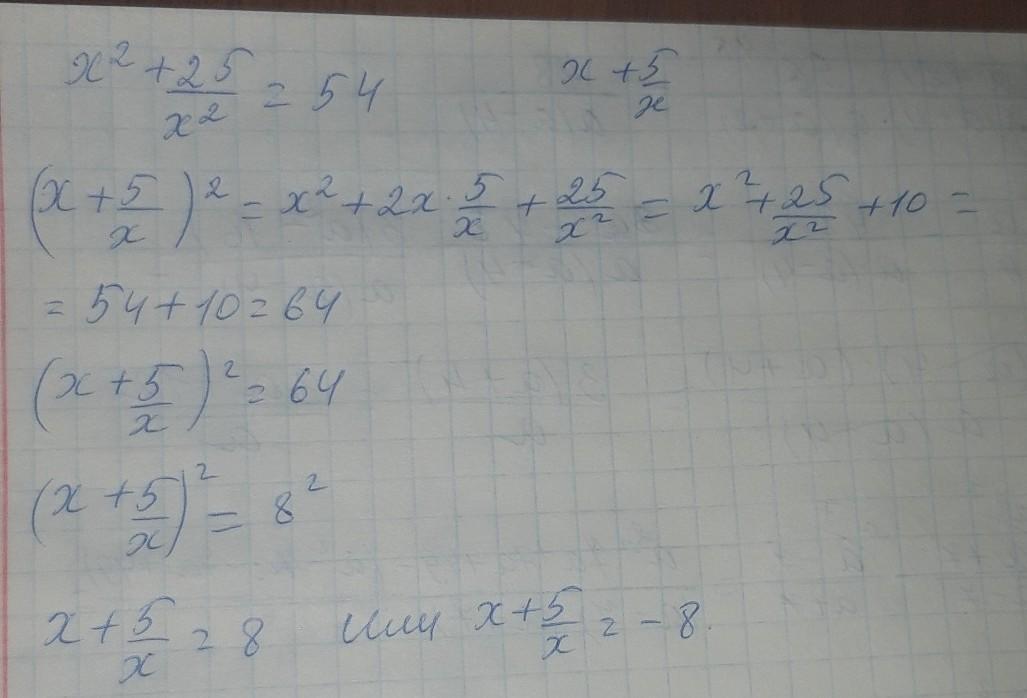 x² + 25/x² = 54 x + 5/x
(x + 5/x)² = x² + 2x · 5/x + 25/x² = x² + 25/x² + 10 =
= 54 + 10 = 64
(x + 5/x)² = 64
(x + 5/x)² = 8²
x + 5/x = 8 или x + 5/x = - 8.